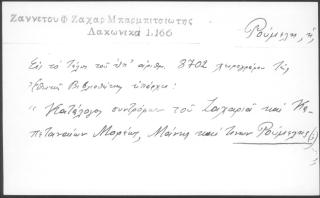 Ζαννετου Φ Ζαχαρ Μπαρμπιτσιώτης
Λακωνικά 1,166
Ρούμελη, ἡ
Εἰς τὸ τέλος τοῦ ὑπ' ἀριθμ. 8702 χειρογράφου τῆς
Ἐθνικῆς Βιβλιοθήκης ὑπάρχει:
"Κατάλογος συντρόφων τοῦ Ζαχαριᾶ καὶ
Καπεταναίων Μορέως, Μάνης καὶ τινων Ρούμελης